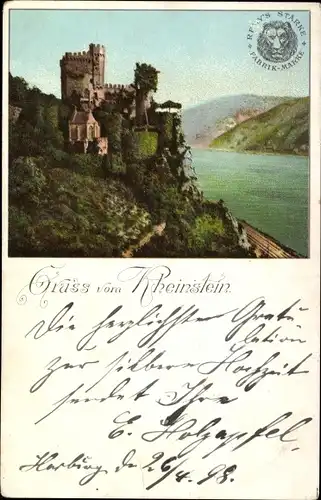 REMY'S STÄRKE
FABRIK-MARKE
Gruss vom Rheinstein.
Die herzlichste Gratu
lation
zur silbern Hochzeit
sendet Ihre
E. Holzapfel.
Harburg d. 26/4. 98.